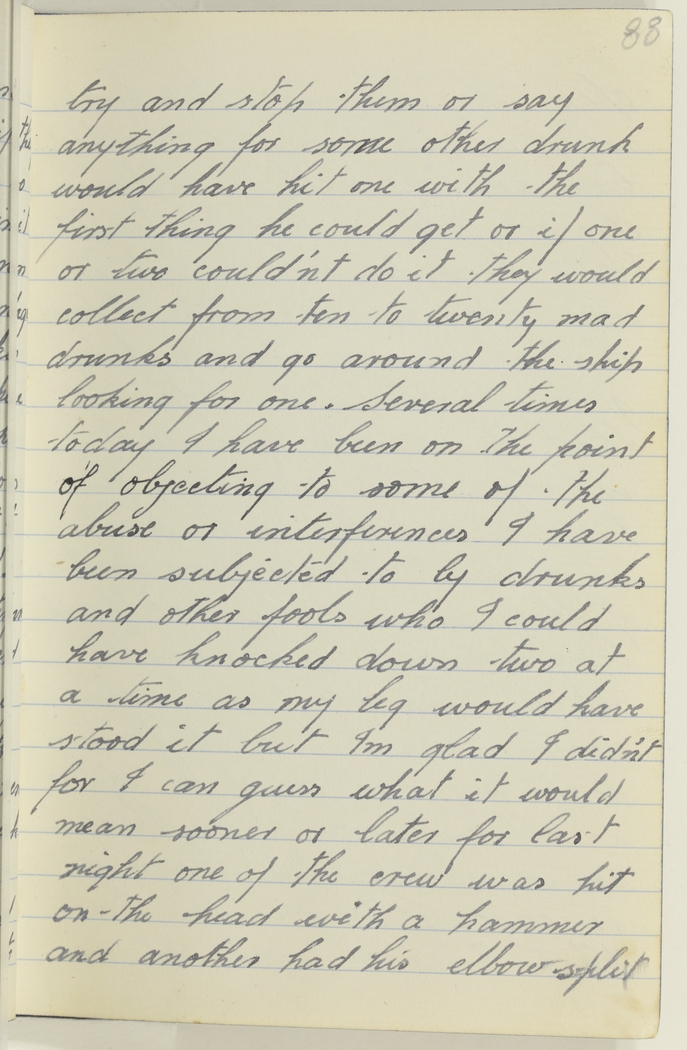 88
try and stop them or say
anything for some other drunk
would have hit one with the
first thing he could get or if one
or two could'nt do it they would
collect from ten to twenty mad
drunks and go around the ship
looking for one. Several times
today I have been on the point
of objecting to some of the
abuse or interferences I have
been subjected to by drunks
and other fools who I could
have knocked down two at
a time as my leg would have
stood it but Im glad I did'nt
for I can guess what it would
mean sooner or later for last
night one of the crew was hit
on the head with a hammer
and another had his elbow split